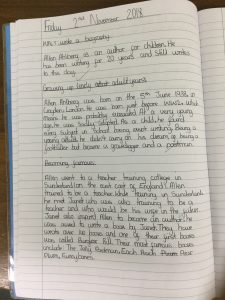 Friday 2nd November 2018
WALT: write a biography.
Allan Ahlberg is an author for children. He
has been writing for 20 years and still writes
to this day.
Growing up
Allan Ahlberg was born on the 5th June 1938 in
Croydon, London. He was born just before WWII which
means he was probably evacuated. At a very young
age, he was sadly adopted. As a child, he found
every subject in School boring except writing. Being a
young adult he didn't carry on his dream of being a
footballer but became a gravedigger and a postman.
Becoming famous.
Allan went to a teacher training college in
Sunderland (on the east coast of England). Allan
trained to be a teacher. While training in Sunderland,
he met Janet who was also training to be a
teacher and who would be his wife in the future.
Janet also inspired Allan to become an author; he
was asked to write a book by Janet. They have
wrote over books and one of their first books
was called Burglar Bill. Their most famous books
include: The Jolly Postman, Each Peach Pear
Plum, Funnybones.